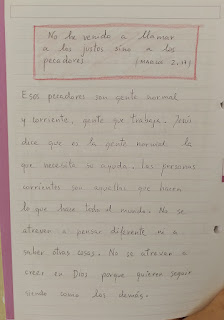 No he venido a llamar
a los justos sino a los
pecadores (MARCOS 2,17)
Esos pecadores son gente normal
y corriente, gente que trabaja. Jesús
dice que es la gente normal la
que necesita su ayuda. Las personas
corrientes son aquellas que hacen
lo que hace todo el mundo. No se
atreven a pensar diferente ni a
saber otras cosas. No se atreven a
creer en Dios porque quieren seguir
siendo como los demás.